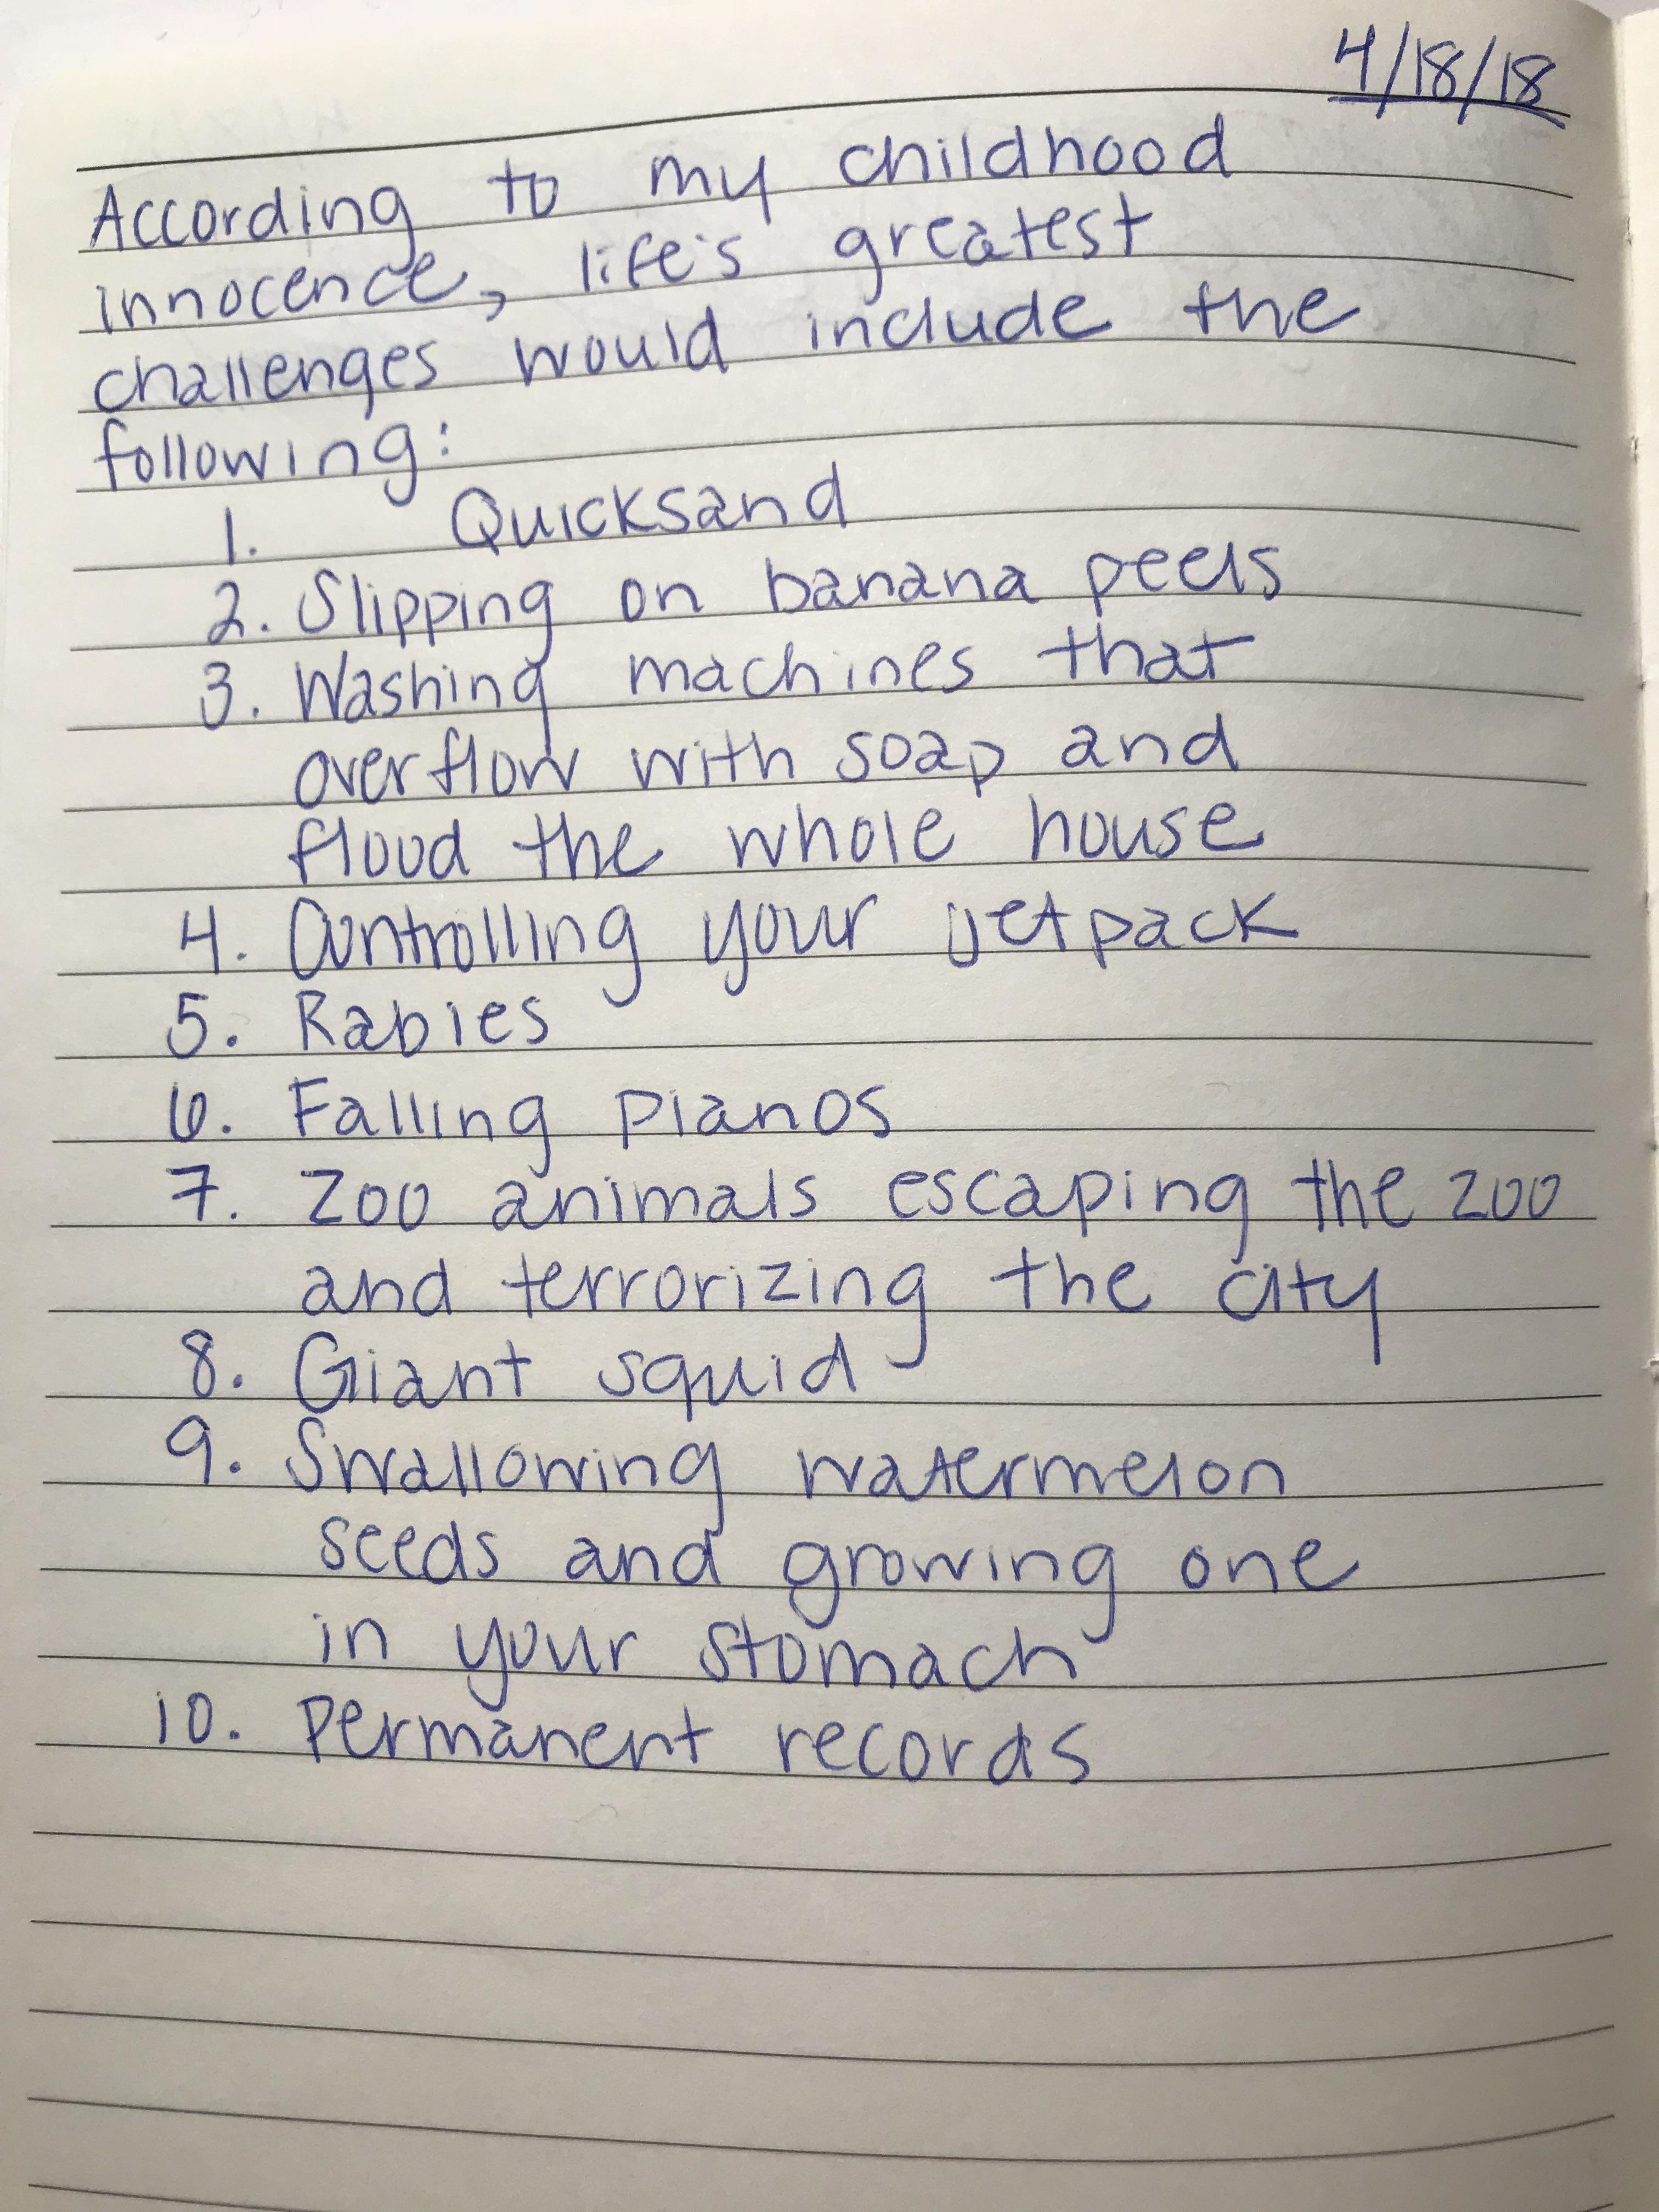 4/18/18
According to my childhood
innocence, life's greatest
challenges would include the
following:
1. Quicksand
2. Slipping on banana peels
3. Washing machines that
overflow with soap and
flood the whole house
4. Controlling your jetpack
5. Rabies
6. Falling pianos
7. Zoo animals escaping the zoo
and terrorizing the city
8. Giant squid
9. Swallowing watermelon
seeds and growing one
in your stomach
10. Permanent records